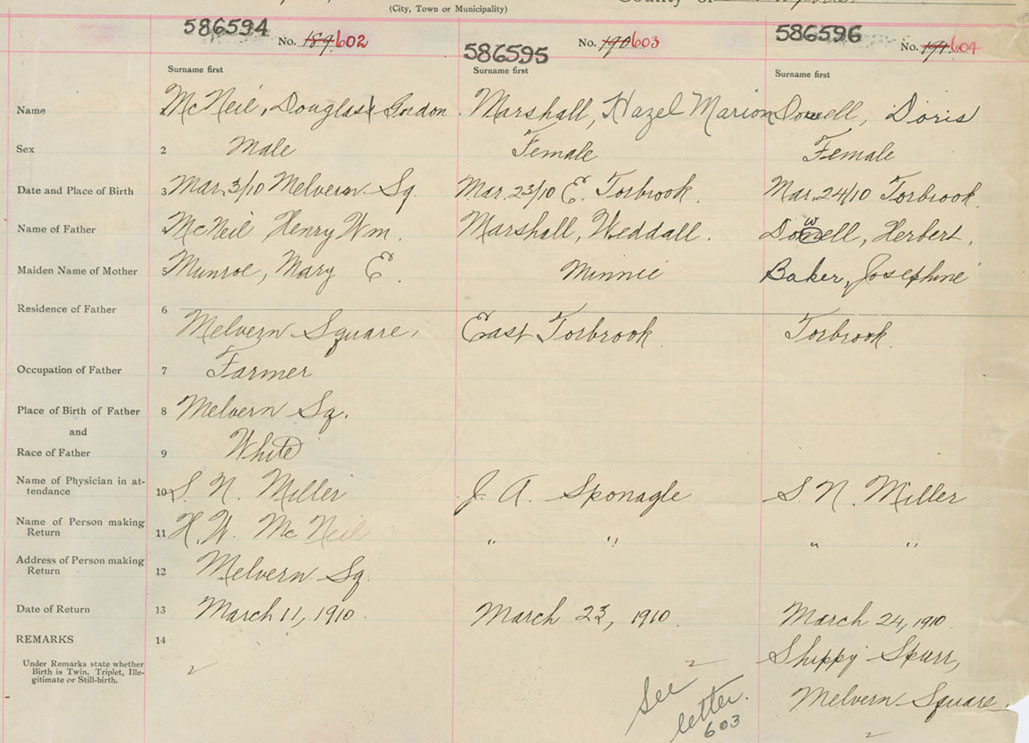 (City, Town or Municipality)
County of
586594 No. 189 602
586595 No. 190 603
586596 No. 191 604
Surname first Surname first Surname first
Name McNeil, Douglas Gordon Marshall, Hazel Marion Dowell, Doris
Sex 2 Male Female Female
Date and Place of Birth 3 Mar. 3/10 Melvern Sq. Mar. 23/10 E. Torbrook. Mar. 24/10 Torbrook.
Name of Father McNeil Henry Wm. Marshall, Weddall. Dowell, Herbert.
Maiden Name of Mother 5 Munroe, Mary E. Minnie Baker, Josephine
Residence of Father 6 Melvern Square, East Torbrook. Torbrook.
Occupation of Father 7 Farmer
Place of Birth of Father 8 Melvern Sq.
and
Race of Father 9 White
Name of Physician in at-
tendance 10 S. N. Miller J. A. Sponagle S. N. Miller
Name of Person making
Return 11 H. W. McNeil " " " "
Address of Person making
Return 12 Melvern Sq.
Date of Return 13 March 11, 1910. March 23, 1910. March 24, 1910.
REMARKS 14 Shippy Spurr,
Under Remarks state whether
Birth is Twin, Triplet, Ille-
gitimate or Still-birth.
Melvern Square.
See
letter.
603